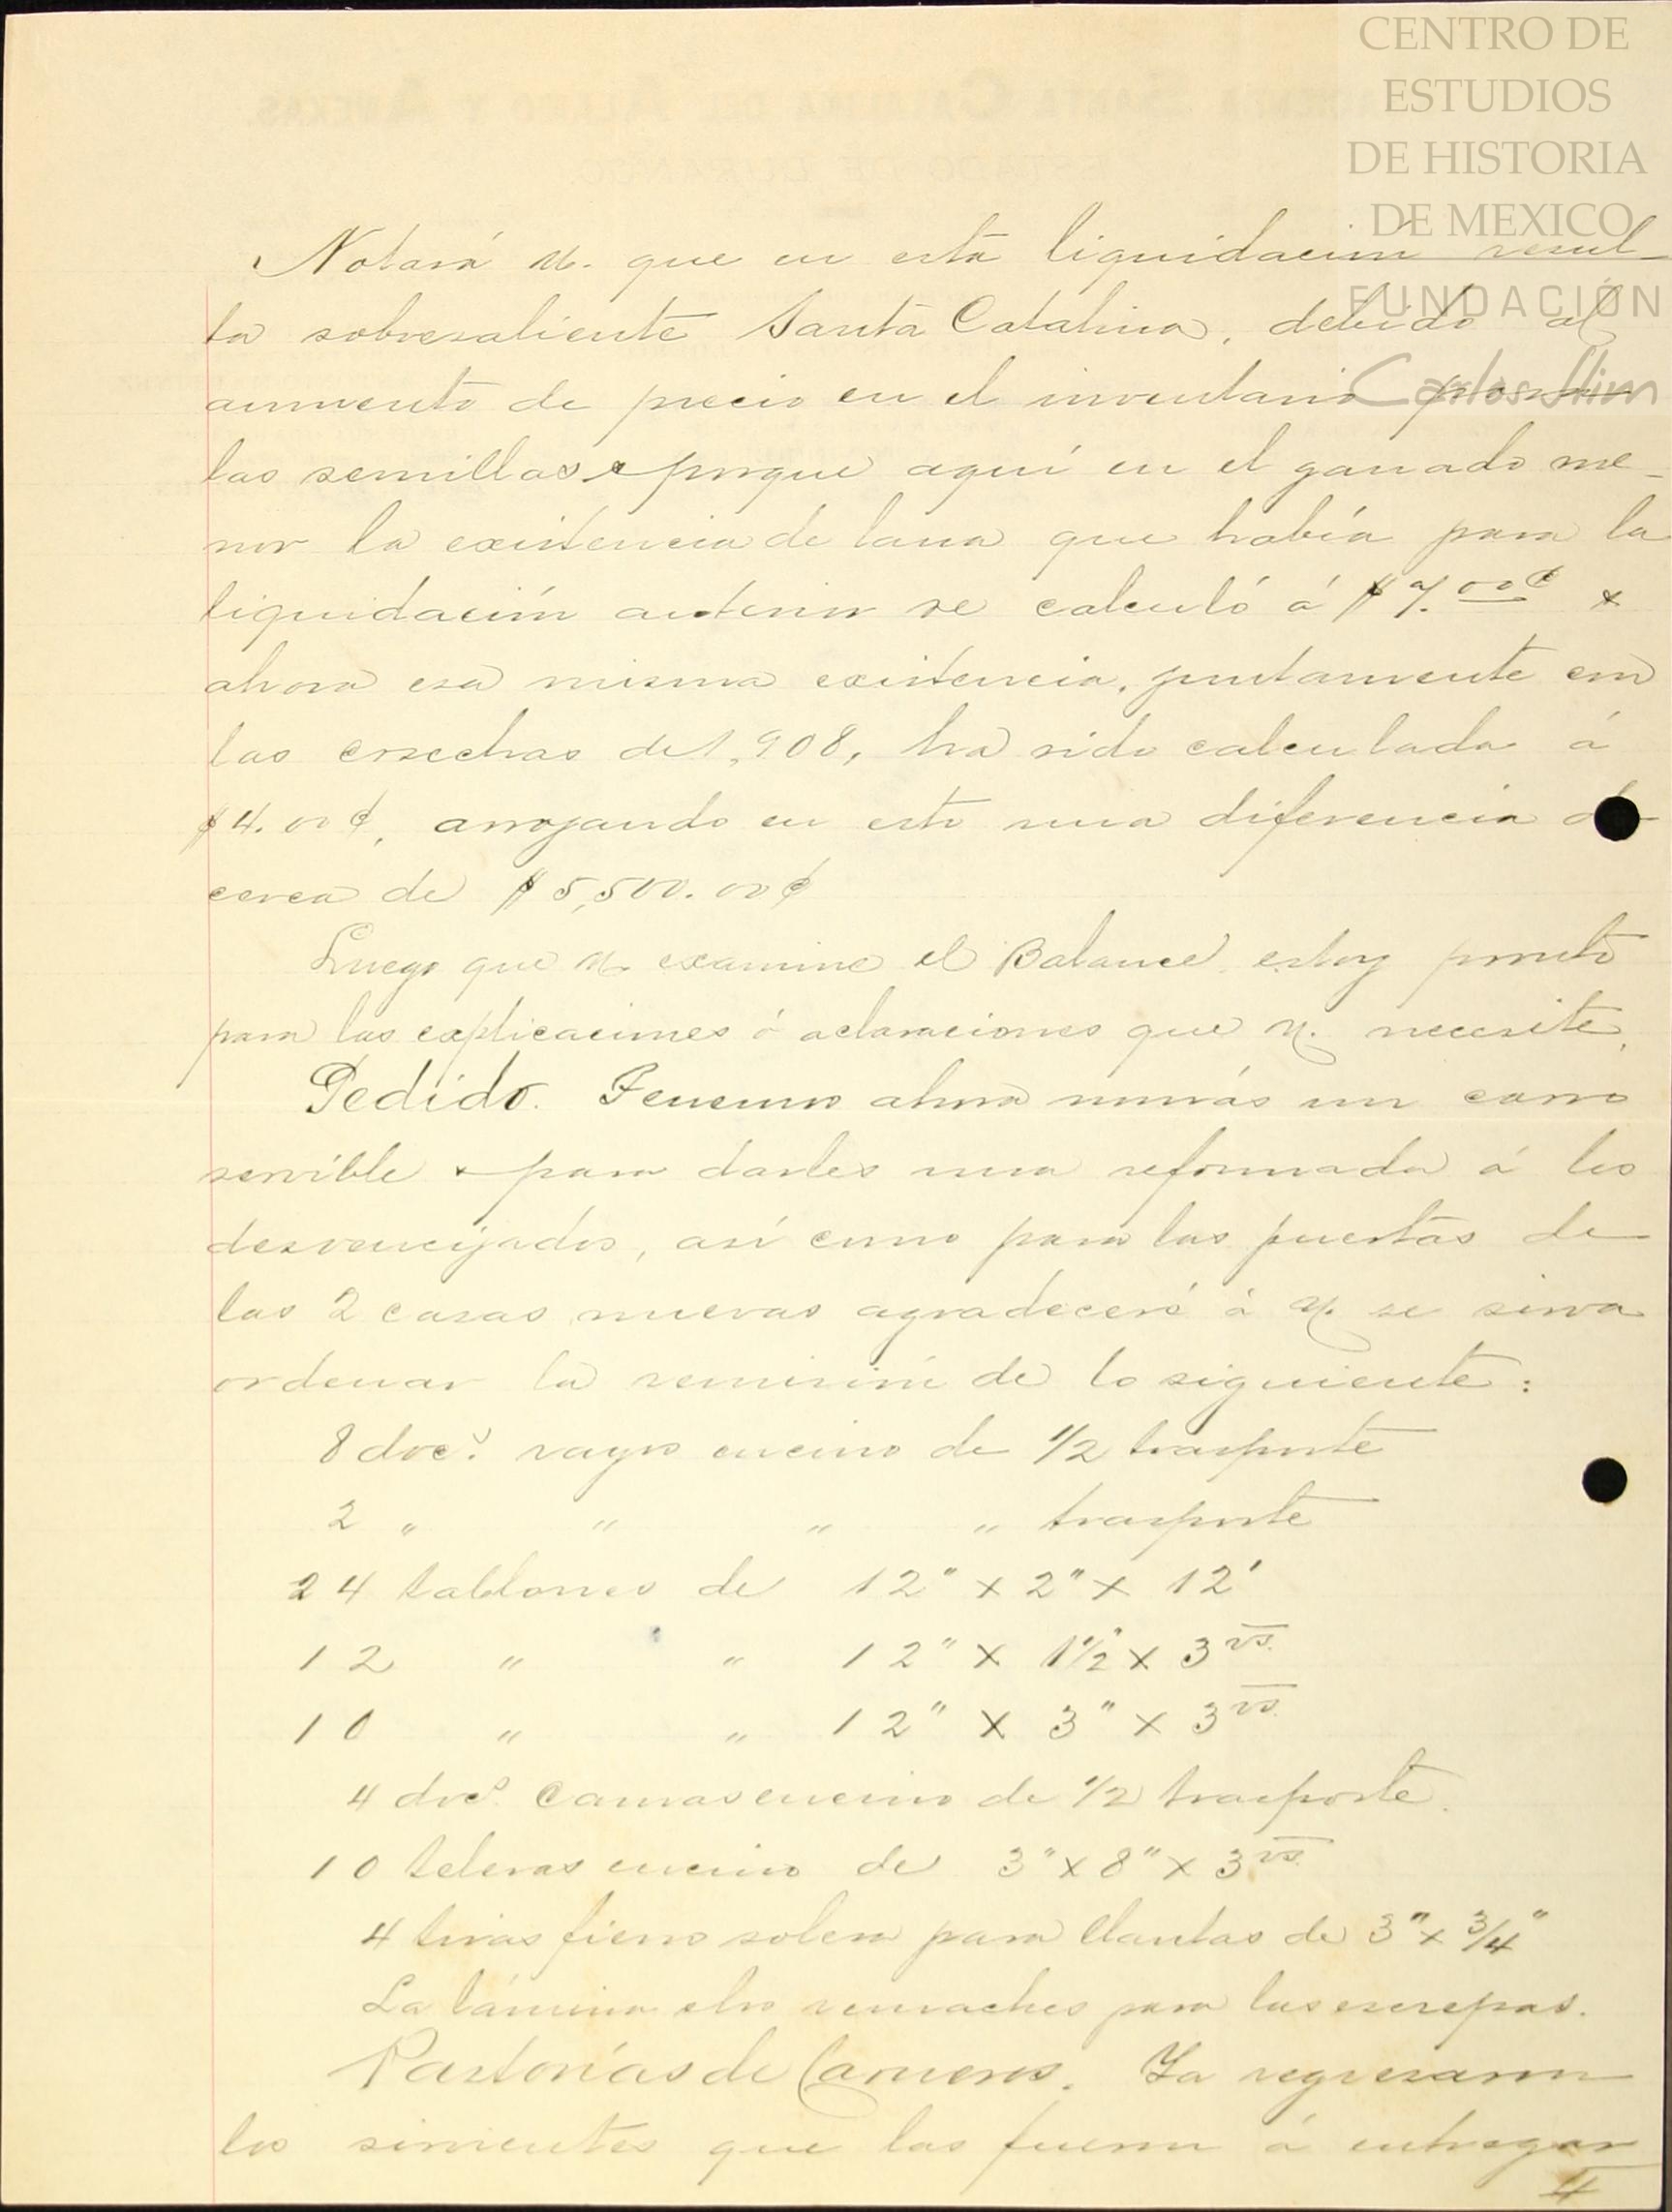 CENTRO DE
ESTUDIOS
DE HISTORIA
DE MEXICO
FUNDACIÓN
Carlos Slim
Notará U. que en esta liquidación resul-
ta sobresaliente Santa Catalina, debido al
aumento de precio en el inventario
las semillas x porque aquí en el ganado me-
nor la existencia de lana que había para la
liquidación anterior se calculó á $7.00¢ x
ahora esa misma existencia, juntamente con
las cosechas de 1,908, ha sido calculada á
$4.00¢, arrojando en esto una diferencia de
cerca de $5,500.00¢
Luego que U. examine el Balance estoy pronto
para las explicaciones ó aclaraciones que U. necesite.
Pedido. Tenemos ahora nomás un carro
servible x para darles una reformada á los
desvencijados, así como para las puertas de
las 2 casas nuevas agradeceré á U. se sirva
ordenar la remisión de lo siguiente:
8 docs. rayos encino de 1/2 trasporte
2 " " " " trasporte
24 tablones de 12" x 2" x 12'
12 " " 12" x 1 1/2" x 3 vs.
10 " " 12" x 3" x 3 vs.
4 docs. camas encino de 1/2 trasporte.
10 teleras encino de 3" x 8" x 3 vs.
4 tiras fierro solera para llantas de 3" x 3/4"
La lámina y los remaches para las escrepas.
Pastorías de Carneros. Ya regresaron
los sirvientes que las fueron á entregar
4